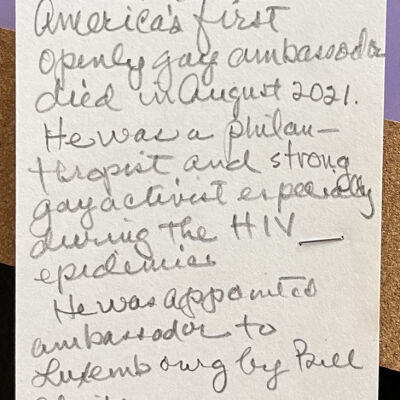 America's first
openly gay ambassador
died in August 2021.
He was a philan-
thropist and strong
gay activist especially
during the HIV
epidemics
He was appointed
ambassador to
Luxembourg by Bill